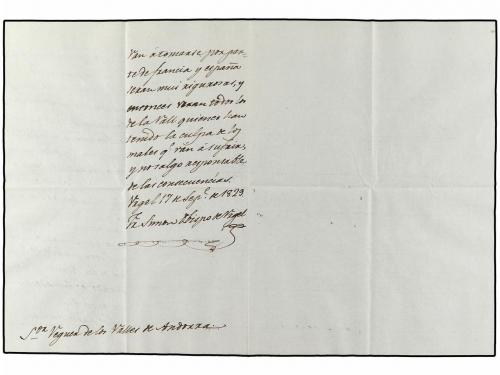 van á tomarse por par-
te de francia y españa
seran mui rigurosas, y
entonces veran todos los
de la Vall quienes han
tenido la culpa de los
males q.e van á sufrir,
y no salgo responsable
de las consecuencias.
Urgel 17 de Sep.e de 1829
Fr. Simon Obispo de Urgel
S.or Veguer de los Valles de Andorra.